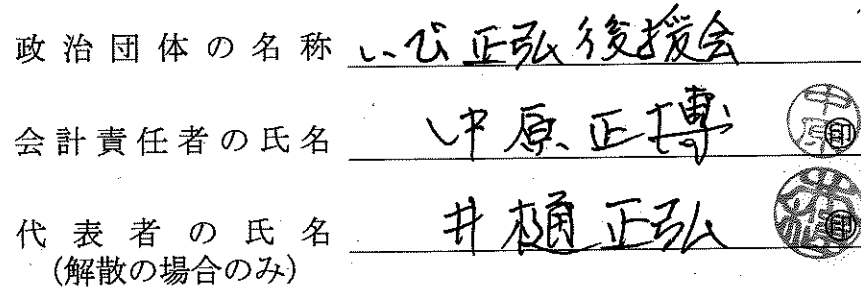 政治団体の名称 いび正弘後援会
会計責任者の氏名 中原正博 中原 印
代表者の氏名 井樋正弘 井樋 印
(解散の場合のみ)